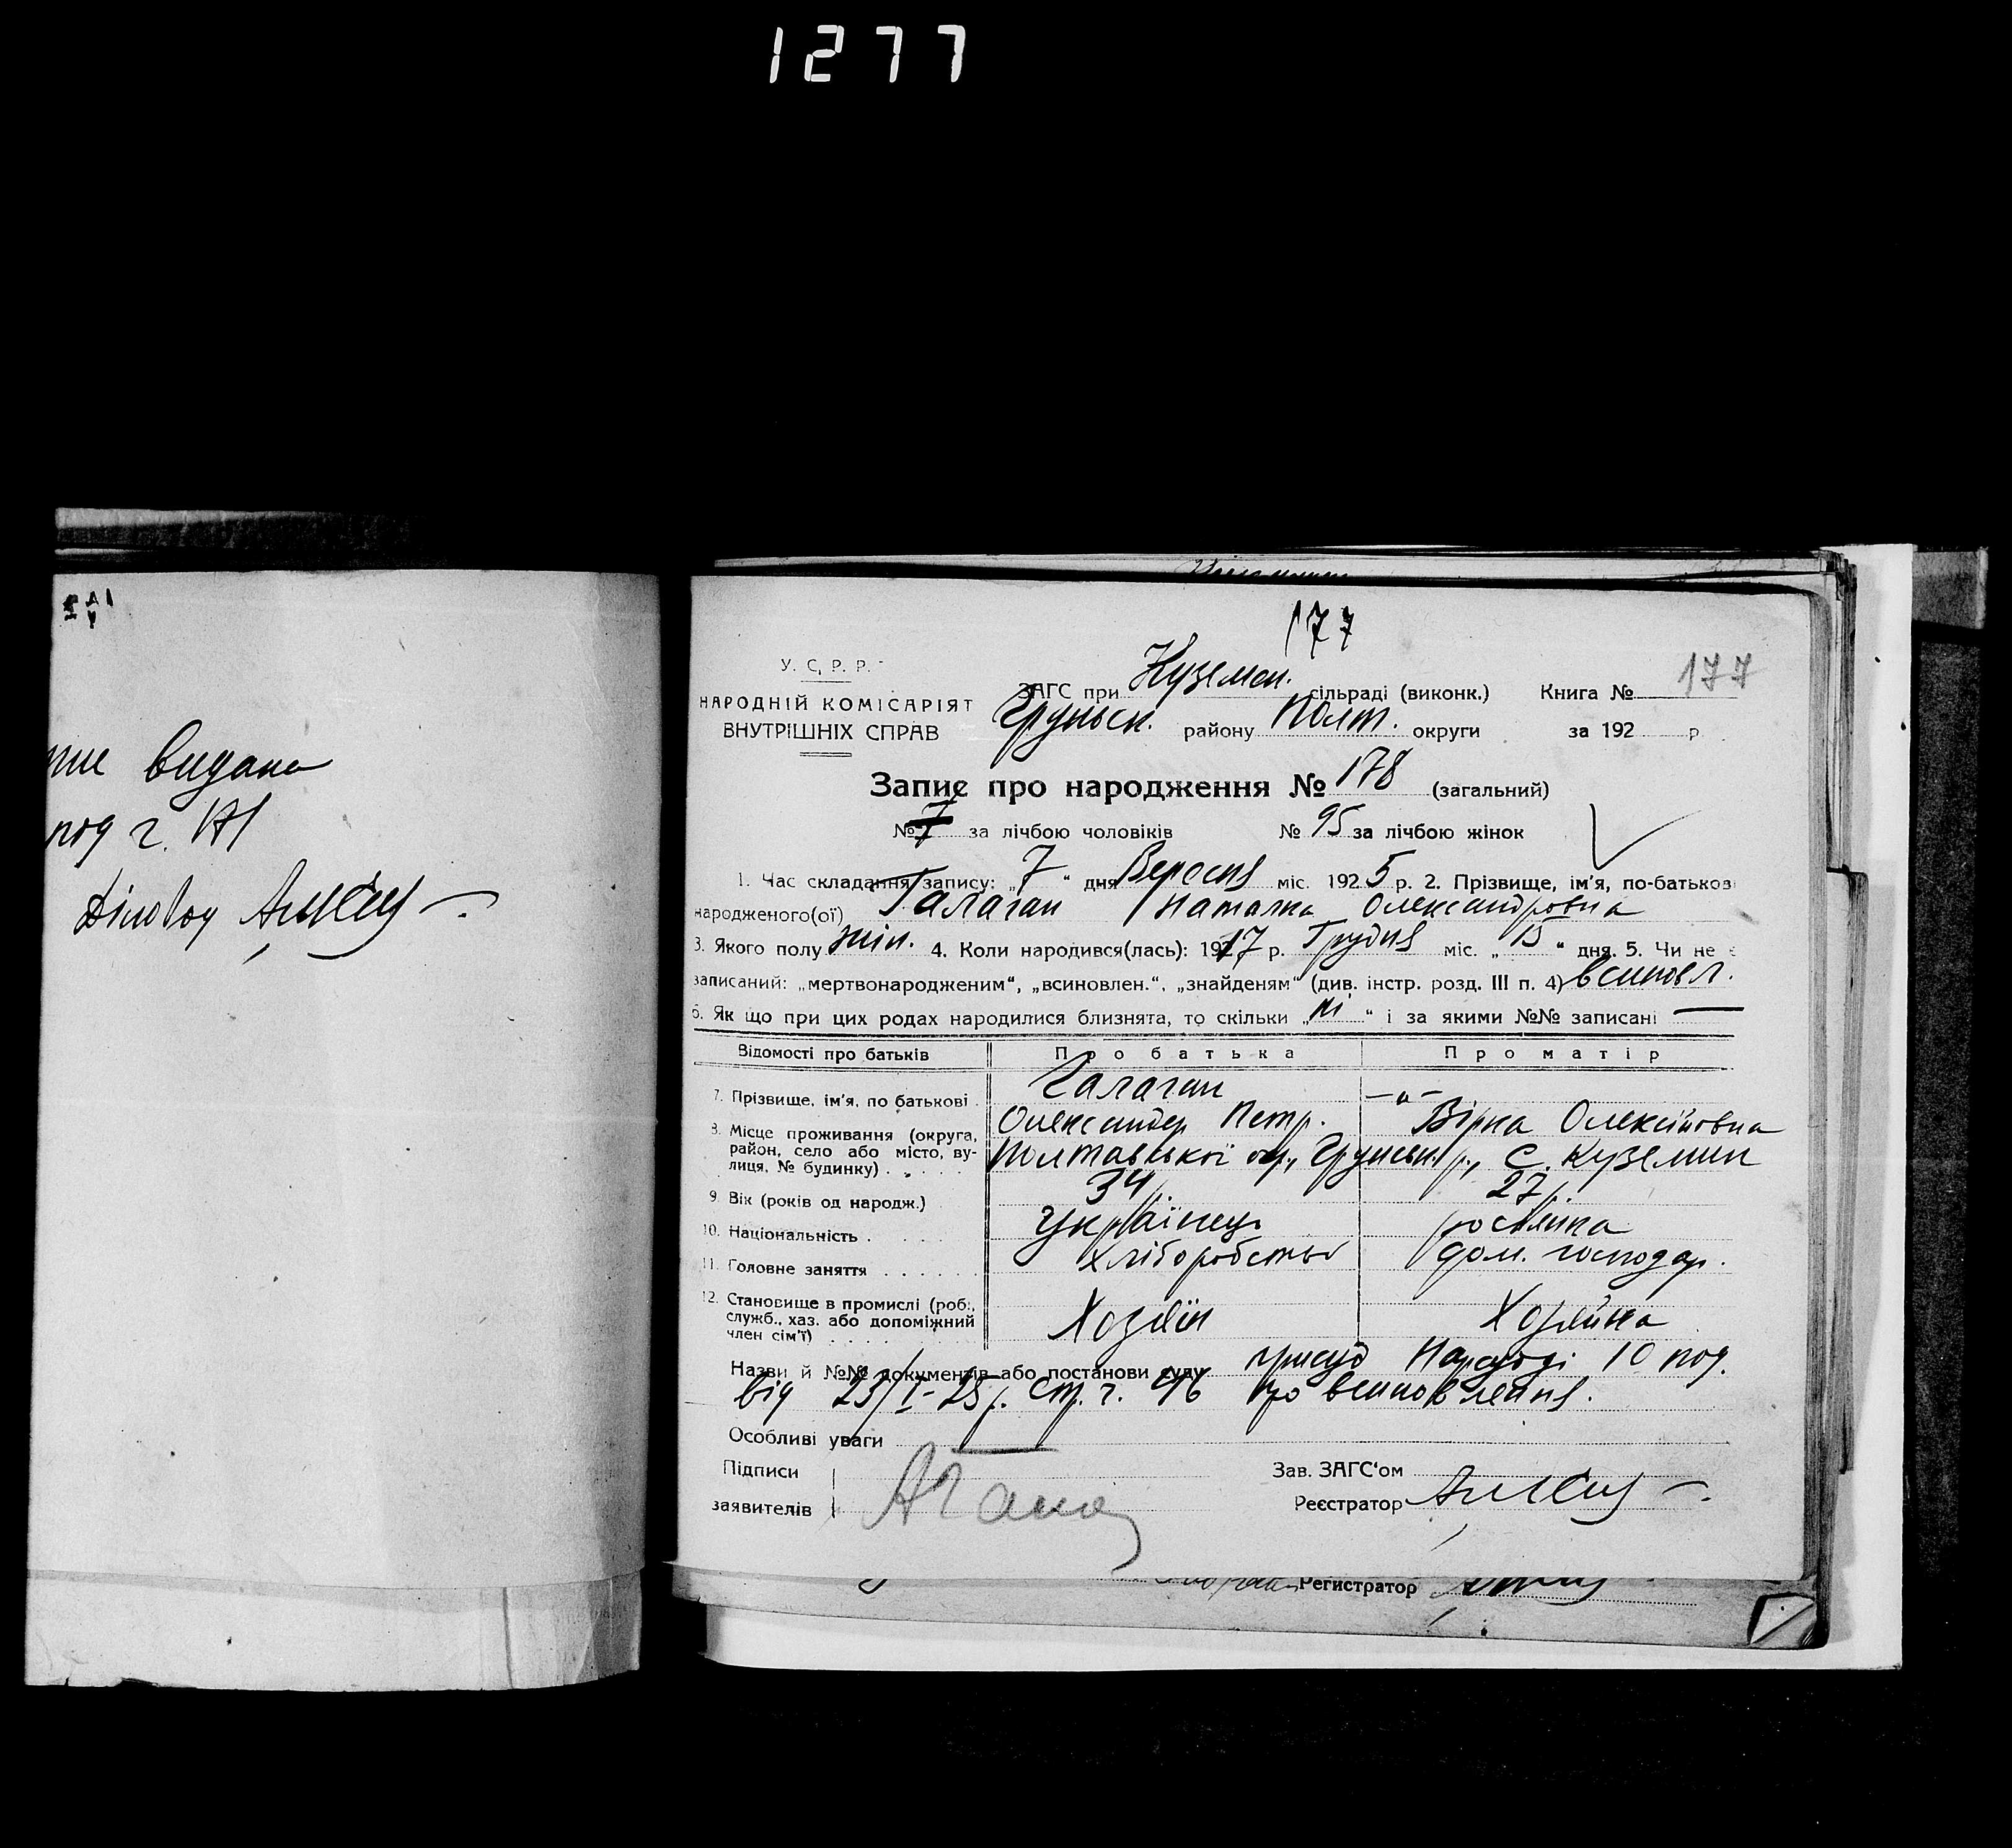 1277
видана
под г.
177
У. С. Р. Р.
НАРОДНІЙ КОМІСАРІЯТ
ВНУТРІШНІХ СПРАВ
ЗАГС при Куземен. сільраді (виконк.) Книга № 177
Груньск. району Полт. округи за 192 р.
Запис про народження № 178 (загальний)
№ 7 за лічбою чоловіків № 95 за лічбою жінок
1. Час складання запису: „7“ дня Вересня міс. 1925 р. 2. Прізвище, ім'я, по-батькові
народженого(ої) Галаган Наталка Олександровна
3. Якого полу жін. 4. Коли народився(лась): 1917 р. Грудня міс. „15“ дня. 5. Чи не є
записаний: „мертвонародженим“, „всиновлен.“, „знайденям“ (див. інстр. розд. III п. 4) всиновл.
6. Як що при цих родах народилися близнята, то скільки „ні“ і за якими №№ записані —
Відомості про батьків Про батька Про матір
7. Прізвище, ім'я, по батькові . Галаган —„—
Олександер Петр. Вірка Олексіновна
8. Місце проживання (округа, район, село або місто, вулиця, № будинку) . . . Полтавської окр., Груньськ. р., с. Куземин
9. Вік (років од народж.) 34 р. 27 р.
10. Національність . . . . Українець росіянка
11. Головне заняття . . . . . . Хліборобство дом. господар.
12. Становище в промислі (роб., служб., хаз. або допоміжний член сім'ї) . . . . Хозяїн Хозяйка
Назви й №№ документів або постанови суду присуд Нарсуді 10 под.
від 23/I-25 р. ст. г. 46 про всиновлення.
Особливі уваги —
Підписи Зав. ЗАГС'ом
заявителів Реєстратор
Регистратор